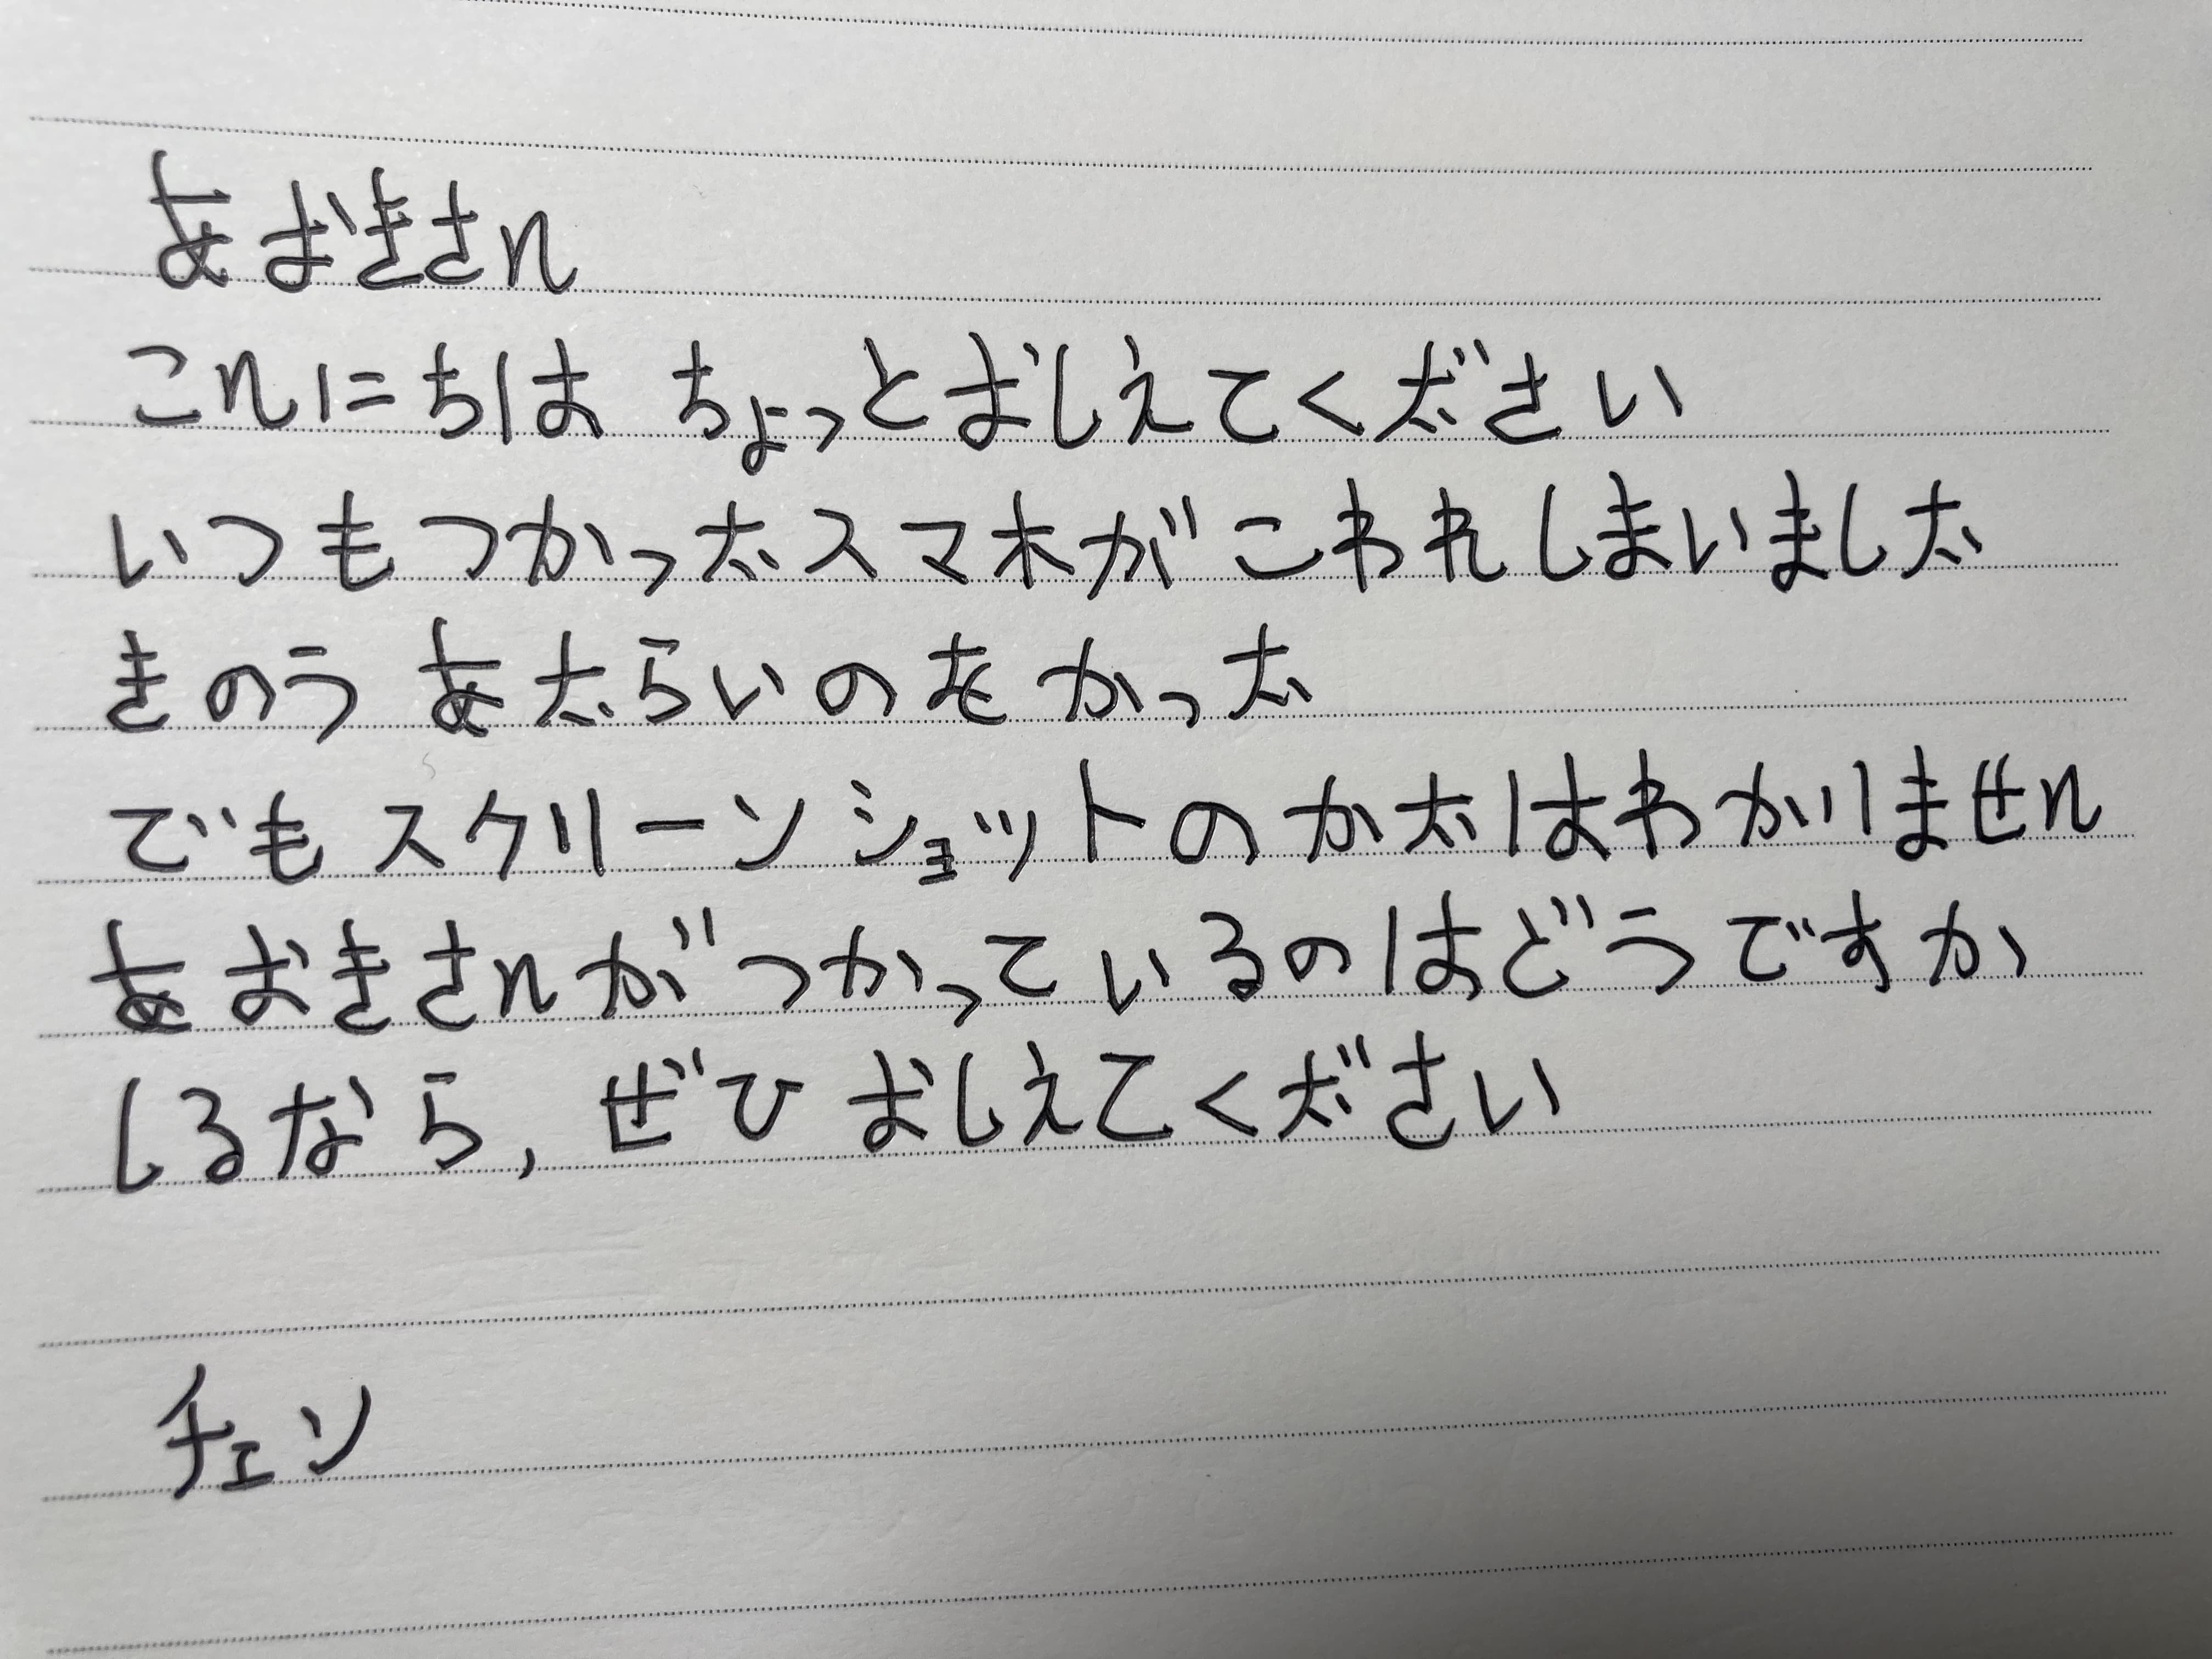 あおきさん
こんにちは ちょっとおしえてください
いつもつかったスマホがこわれしまいました
きのう あたらいのをかった
でもスクリーンショットのかたはわかりません
あおきさんがつかっているのはどうですか
しるなら, ぜひ おしえてください
チェン